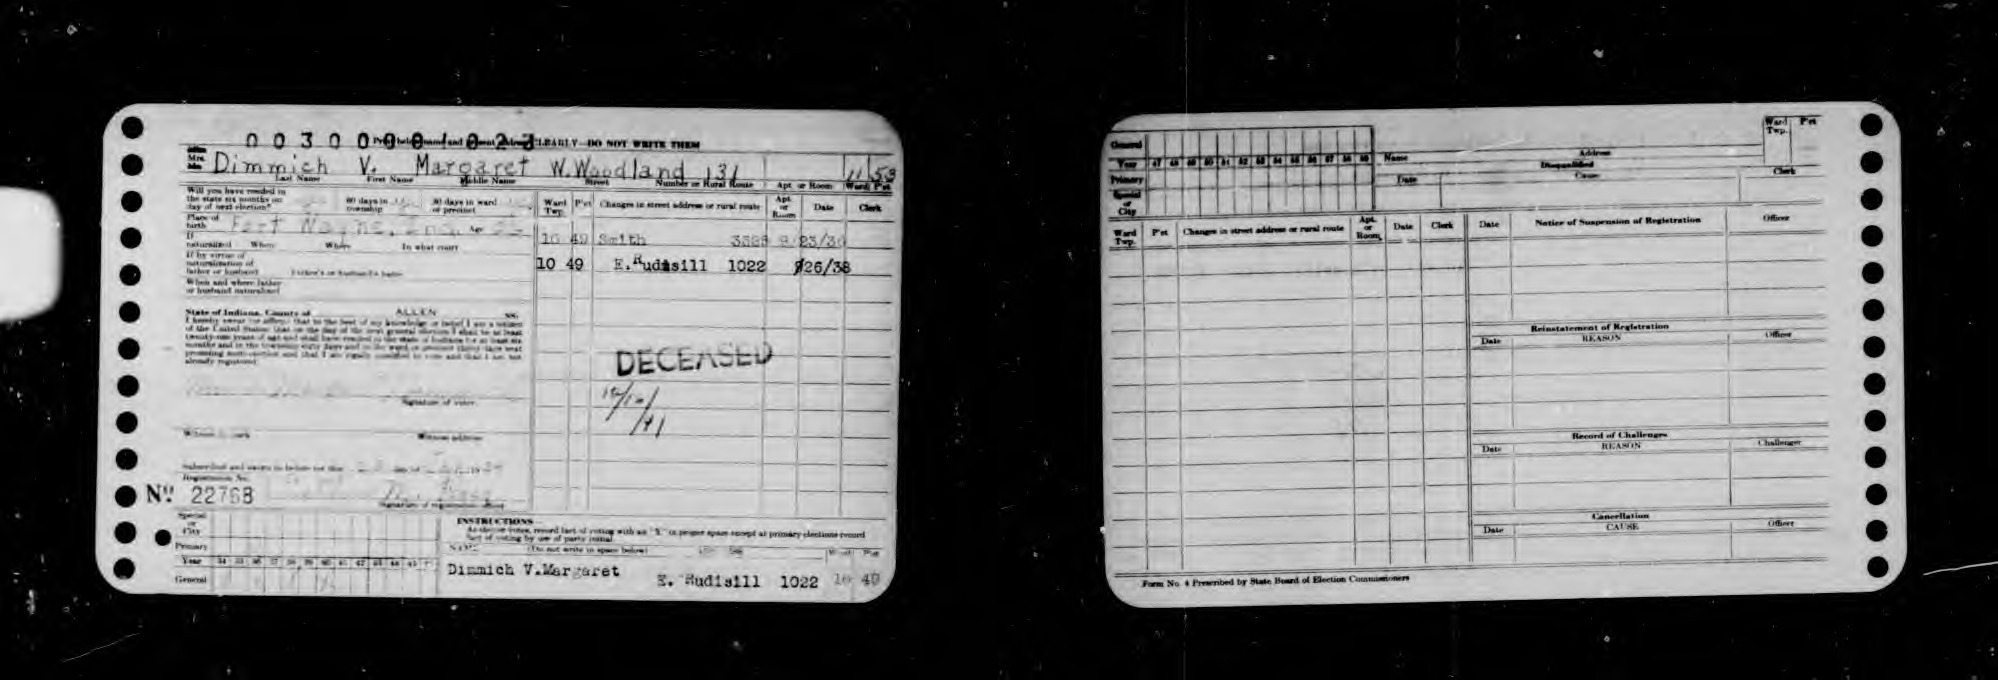 0030000/023
Print
name and
CLEARLY—DO NOT WRITE THEM
Mrs.
Dimmich V. Margaret W. Woodland 131 11 53
Last Name First Name Middle Name Street Number or Rural Route Apt. or Room Ward P'ct
Will you have resided in
the state six months on
day of next election?
60 days in
township
30 days in ward
or precinct
Place of
birth
Fort Wayne, Ind. Age
If
naturalized When Where In what court
If by virtue of
naturalization of
father or husband Father's or husband's name
When and where father
or husband naturalized
State of Indiana, County of ALLEN ss.
I hereby swear (or affirm) that to the best of my knowledge or belief I am a citizen
of the United States; that on the day of the next general election I shall be at least
twenty-one years of age and shall have resided in the state of Indiana for at least six
months and in the township sixty days and in the ward or precinct thirty days next
preceding such election and that I am legally qualified to vote and that I am not
already registered.
Signature of voter.
Witness to mark Witness address
Subscribed and sworn to before me this day of
Registration No.
Nº 22768
Signature of registration officer
Ward
Twp. P'ct Changes in street address or rural route Apt.
or
Room Date Clerk
10 49 Smith 23/36
10 49 E. Rudisill 1022 9/26/38
DECEASED
12/10/41
Special
or
City
Primary
Year 34 35 36 37 38 39 40 41 42 43 44 45
General
INSTRUCTIONS—
As elector votes, record fact of voting with an "X" in proper space except at primary elections record
fact of voting by use of party initial.
NAME (Do not write in space below) Ward P'ct
Dimmich V.Margaret
E. Rudisill 1022 10 49
General
Year 47 48 49 50 51 52 53 54 55 56 57 58 59
Primary
Special
or
City
Name Address Ward
Twp. P'ct
Disqualified
Date Cause Clerk
Ward
Twp. P'ct Changes in street address or rural route Apt.
or
Room Date Clerk
Date Notice of Suspension of Registration Officer
Reinstatement of Registration
Date REASON Officer
Record of Challenges
Date REASON Challenger
Cancellation
Date CAUSE Officer
Form No. 4 Prescribed by State Board of Election Commissioners